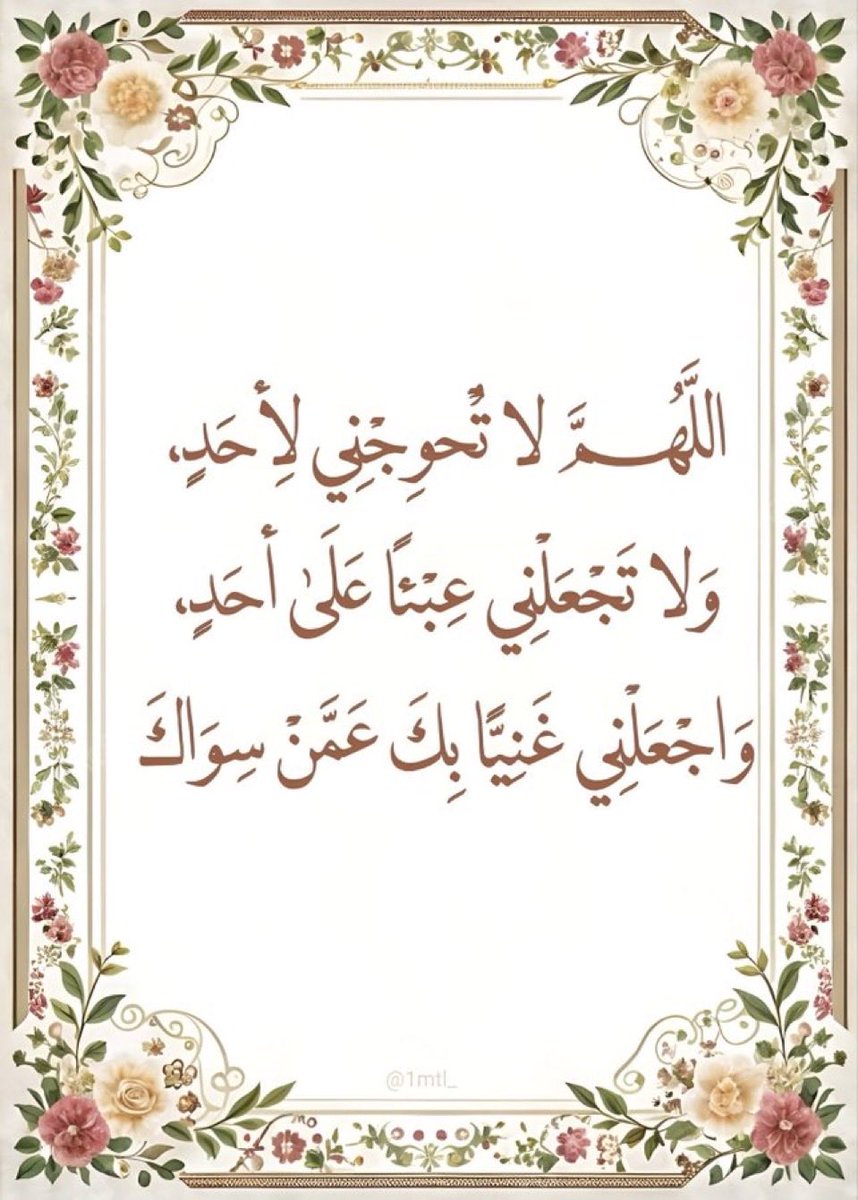 اللَّهُمَّ لا تُحوِجْنِي لِأحَدٍ،
وَلا تَجْعَلْنِي عِبْئًا عَلَىٰ أحَدٍ،
وَاجْعَلْنِي غَنِيًّا بِكَ عَمَّنْ سِوَاكَ
@1mtl_